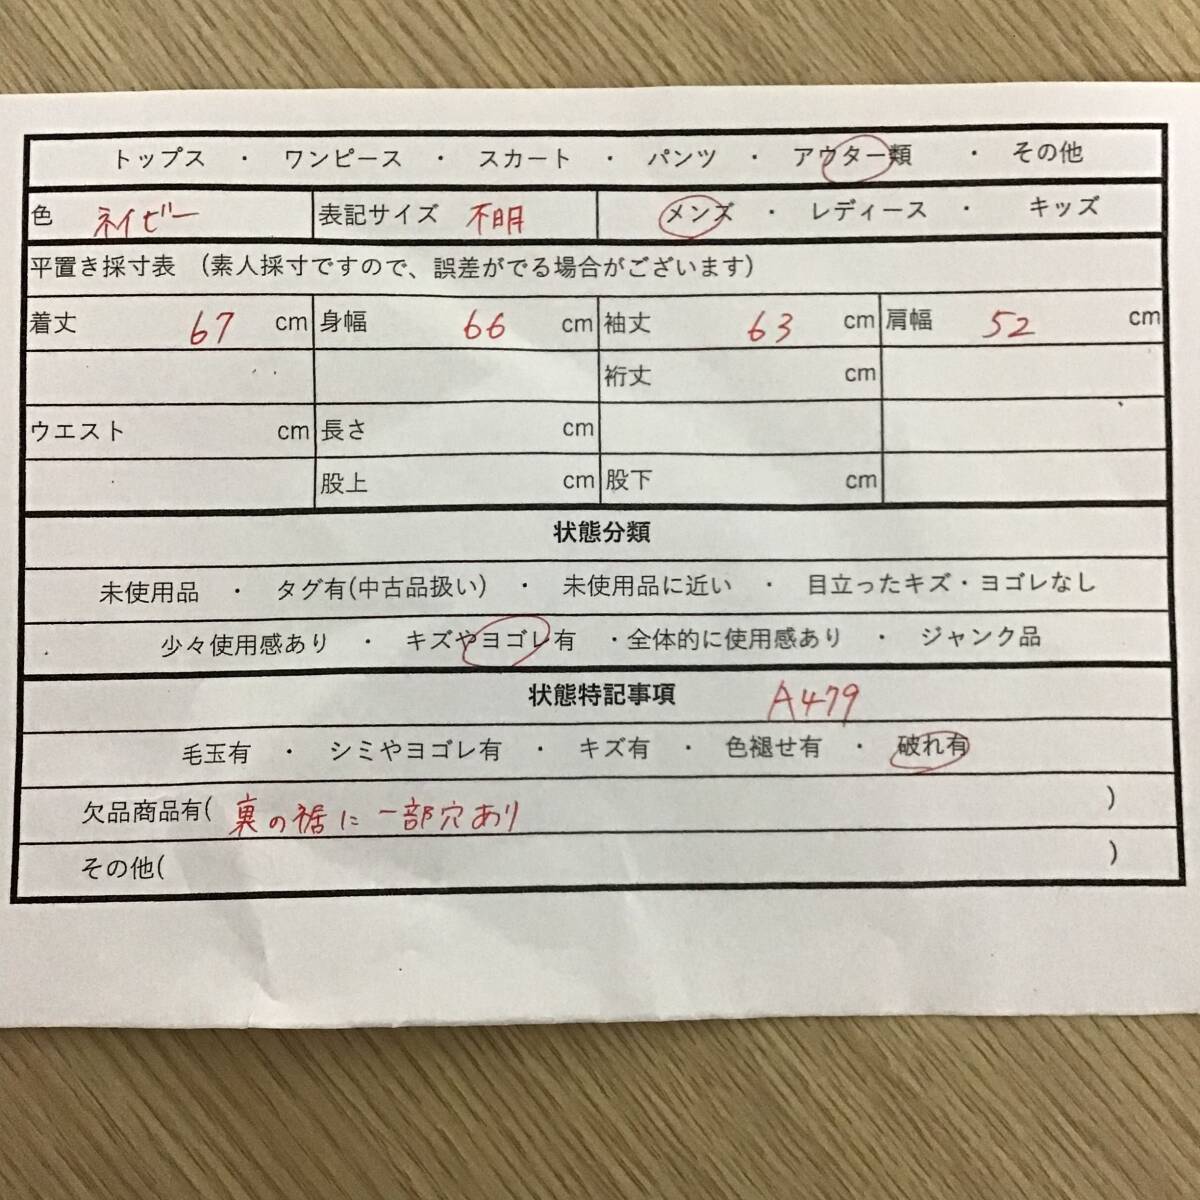 トップス ・ ワンピース ・ スカート ・ パンツ ・ アウター類 ・ その他
色 ネイビー 表記サイズ 不明 メンズ ・ レディース ・ キッズ
平置き採寸表 (素人採寸ですので、誤差がでる場合がございます)
着丈 67 cm 身幅 66 cm 袖丈 63 cm 肩幅 52 cm
裄丈 cm
ウエスト cm 長さ cm
股上 cm 股下 cm
状態分類
未使用品 ・ タグ有(中古品扱い) ・ 未使用品に近い ・ 目立ったキズ・ヨゴレなし
少々使用感あり ・ キズやヨゴレ有 ・全体的に使用感あり ・ ジャンク品
状態特記事項 A479
毛玉有 ・ シミやヨゴレ有 ・ キズ有 ・ 色褪せ有 ・ 破れ有
欠品商品有( 裏の裾に一部穴あり )
その他( )